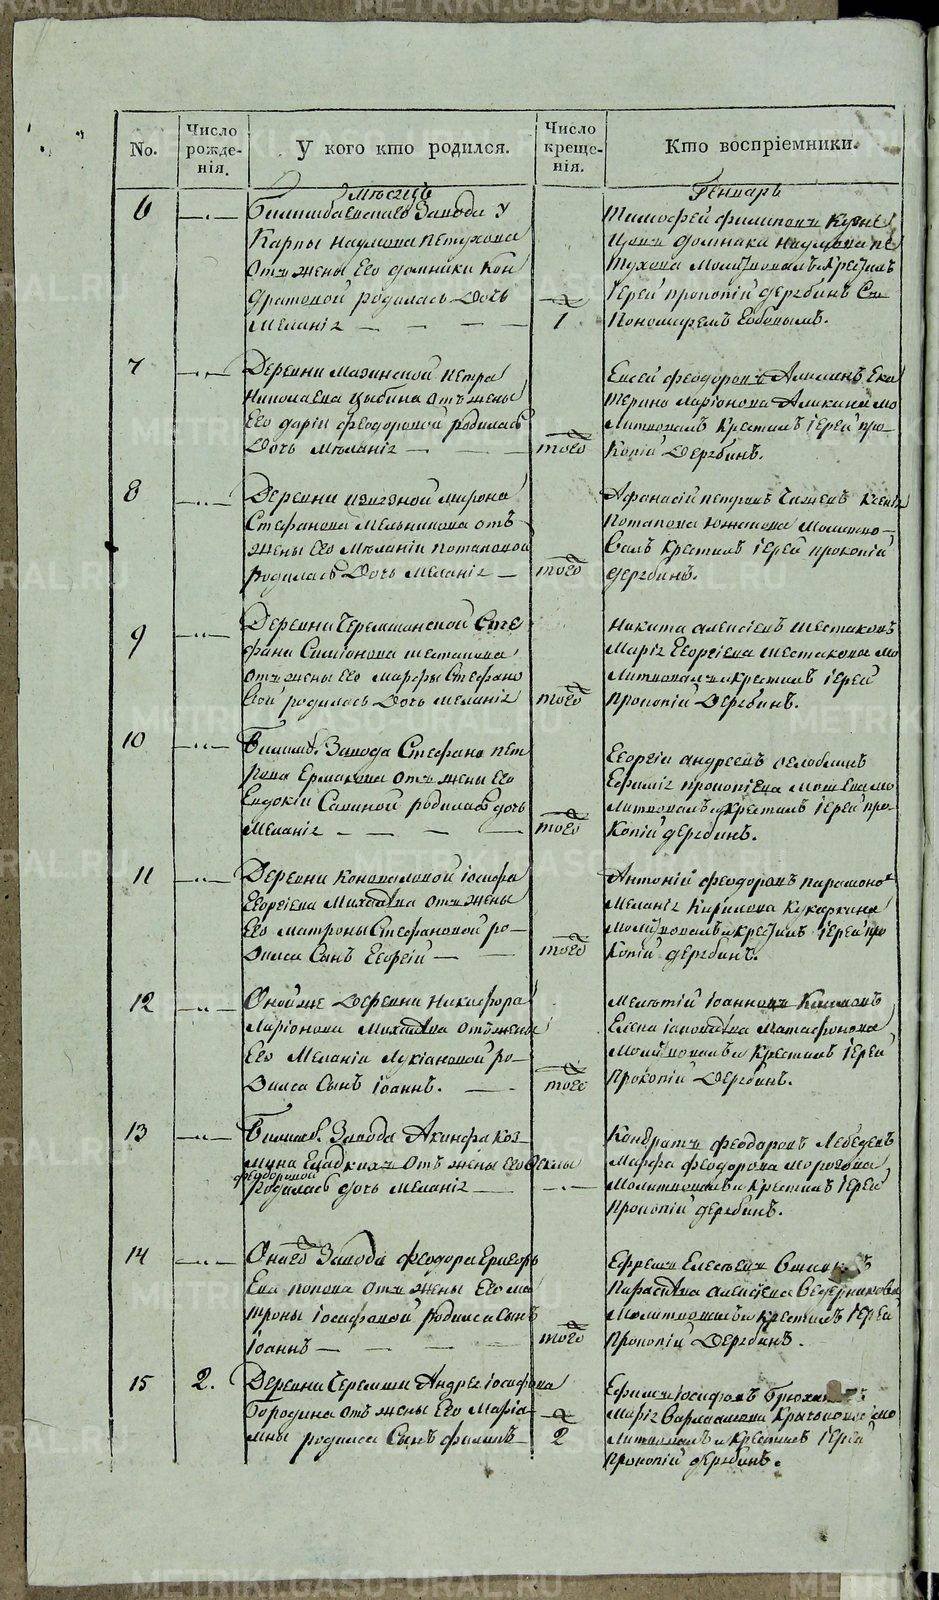 No.
Число рожде-нія.
У кого кто родился.
Число креще-нія.
Кто воспріемники.
Мѣсяцъ
Генварь
6
Билимбаевскаго Завода у
Карпы Наумова Петухова
отъ жены его Домники Кон
дратовой родилась дочь
Меланія
1
Тимофей Филиповъ
Домника Наумова Пе
тухова молитвовалъ и крестилъ
Іерей Прокопій Дерябинъ съ
Пономаремъ
7
Деревни Петра
Николаева Цыбина отъ жены
его Дарьи Феодоровой родилась
дочь Мѣланія
того
Евсей Феодоровъ Аликинъ Ека
терина Ларіонова Аликина мо
литвовалъ крестилъ Іерей Про-
копій Дерябинъ.
8
Деревни Мирона
Стефанова Мельникова отъ
жены его Мѣланіи Потаповой
родилась дочь Меланія
того
Афанасій Петровъ
Потапова молитво-
валъ крестилъ Іерей Прокопій
Дерябинъ.
9
Деревни Черемшанской Сте
фана Симіонова Шестакова
отъ жены его Марфы Стефано
вой родилась дочь Меланія
того
Никита Алексіевъ Шестаковъ
Марія Георгіева Шестакова мо
литвовалъ и крестилъ Іерей
Прокопій Дерябинъ.
10
Билимб. Завода Стефана Пет
рова Ермакова отъ жены его
Евдокіи Савиной родилась дочь
Меланія
того
Георгій Андреевъ
Ефимія Прокопіева мо
литвовалъ и крестилъ Іерей Про
копій Дерябинъ.
11
Деревни Коноваловой Іосифа
Георгіева Михалёва отъ жены
его Матроны Стефановой ро-
дился сынъ Георгій
того
Антоній Феодоровъ
Меланія Кирилова Кукаркина
молитвовалъ и крестилъ Іерей Про
копій Дерябинъ.
12
Оной же деревни Никифора
Ларіонова Михалёва отъ жены
его Меланіи Лукіановой ро-
дился сынъ Іоаннъ.
того
Мелетій Іоанновъ
Елена Іаковлева Матафонова
молитвовалъ и крестилъ Іерей
Прокопій Дерябинъ.
13
Билимб. Завода Акинфа Коз-
мина отъ жены его Феклы
Феодоровой
родилась дочь Меланія
Кондратъ Феодоровъ Лебедевъ
Марфа Феодорова Морозова
молитвовалъ и крестилъ Іерей
Прокопій Дерябинъ.
14
Онаго Завода Феодора Григорь
ева Попова отъ жены его Ма
троны Іосифовой родился сынъ
Іоаннъ
того
Ефремъ Елесѣевъ
Параскева Алексіева Ведерникова
молитвовалъ и крестилъ Іерей
Прокопій Дерябинъ.
15
2.
Деревни Черемши Андрея Іосифова
Бородина отъ жены его Маріа-
мны родился сынъ Филипъ
2
Ефимъ Іосифовъ
Марія Варлаамова мо
литвовалъ и крестилъ Іерей
Прокопій Дерябинъ.
METRIKI.GASO-URAL.RU